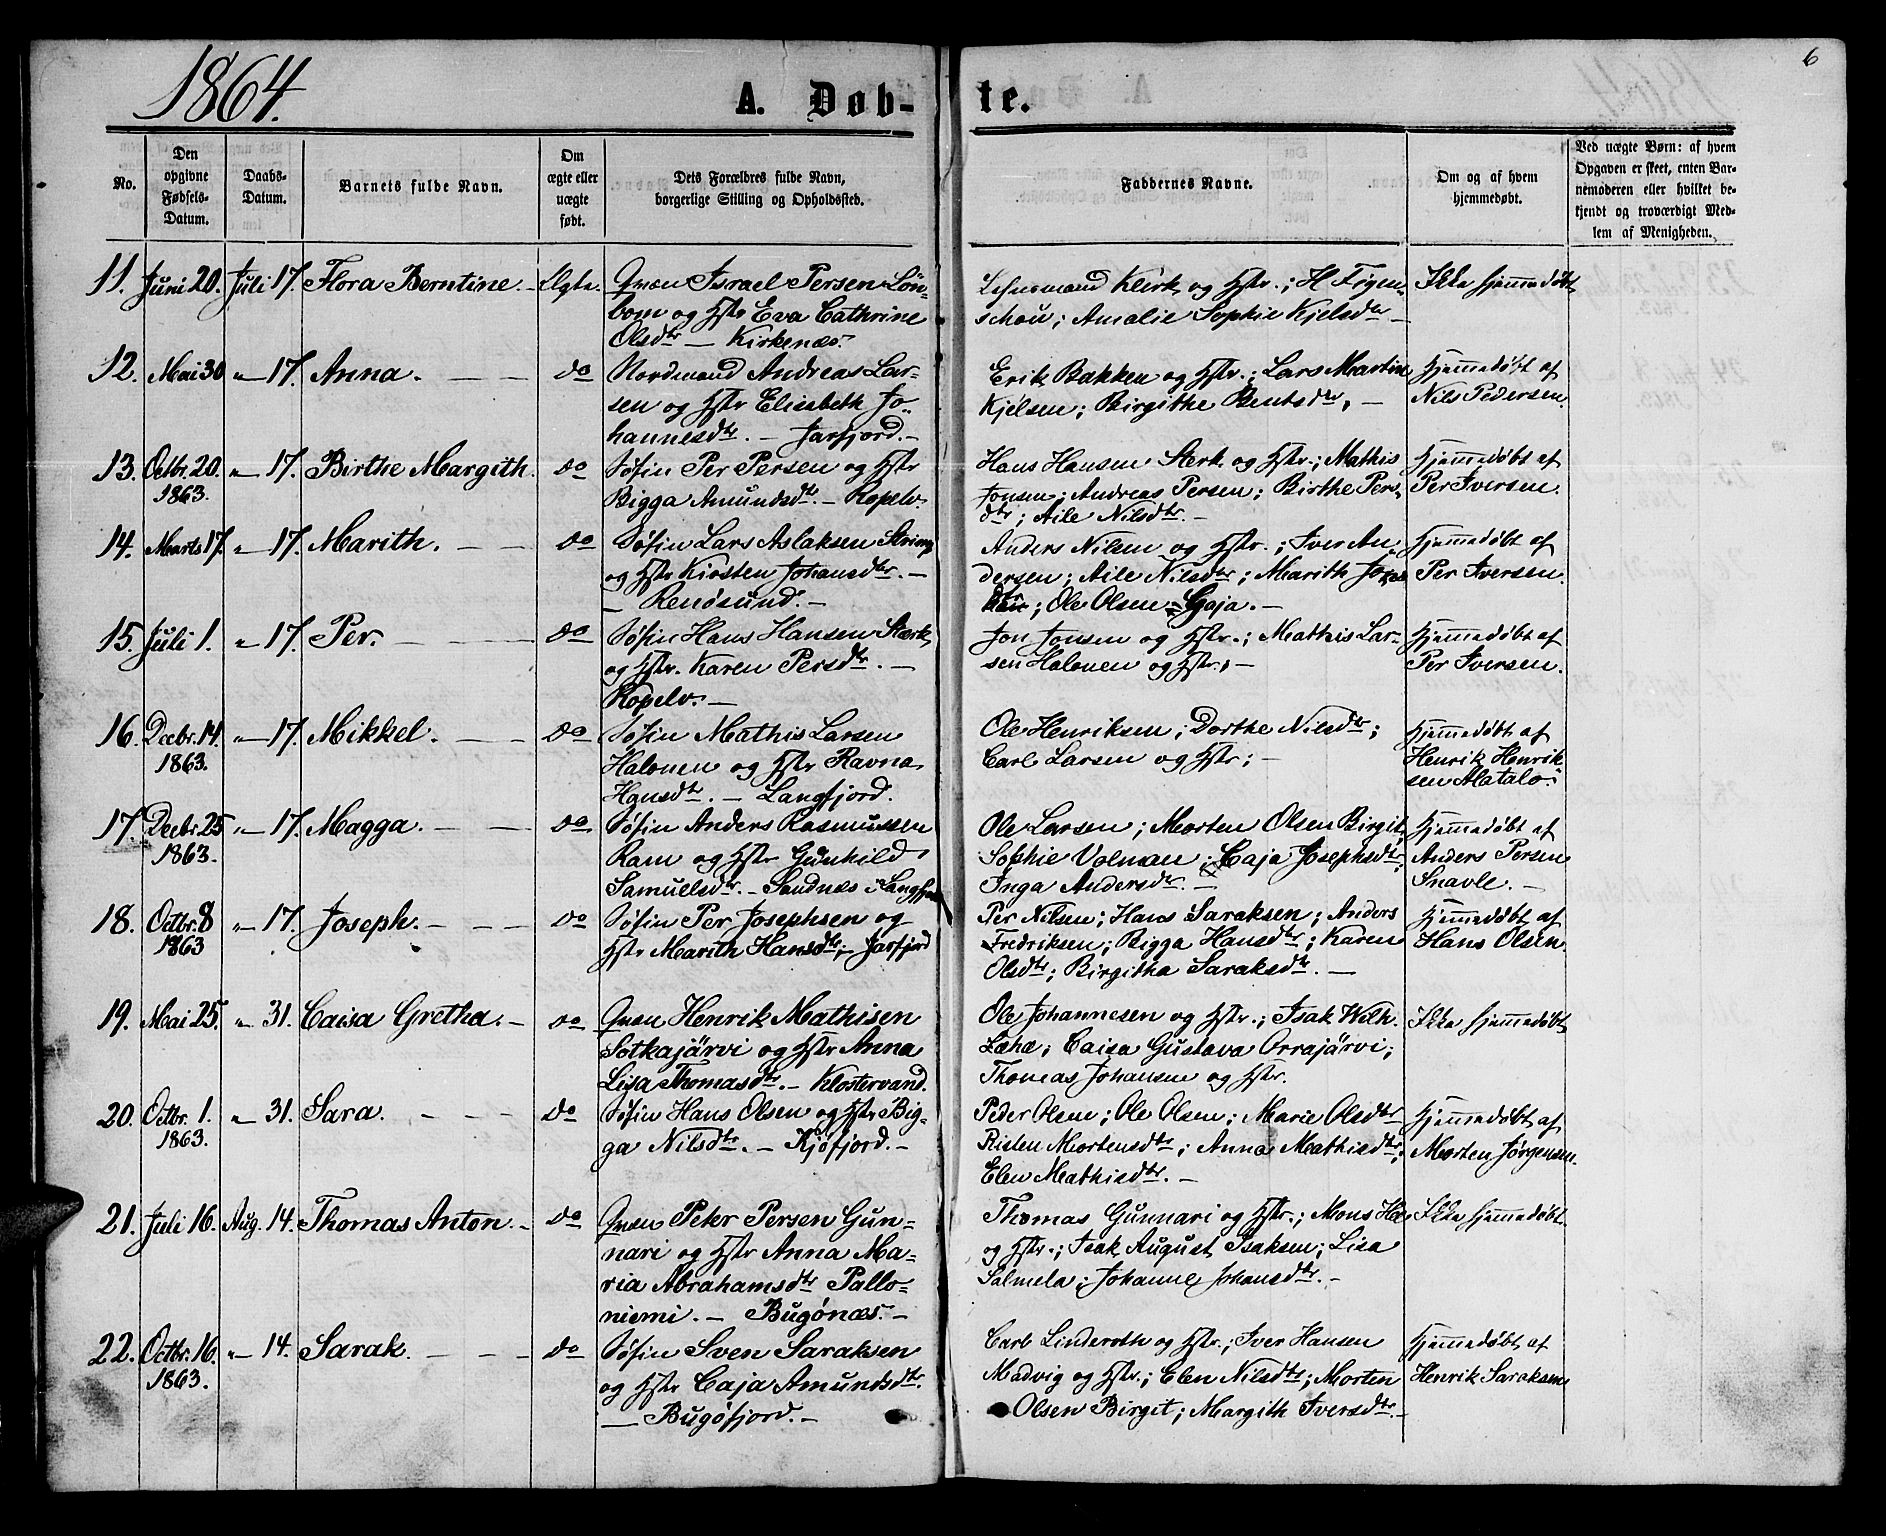 6
1864.
A. Døb-
te.
No.
Den opgivne Fødsels-Datum.
Daabs-Datum.
Barnets fulde Navn.
Om ægte eller uægte født.
Dets Forældres fulde Navn, borgerlige Stilling og Opholdssted.
Faddernes Navne.
Om og af hvem hjemmedøbt.
Ved uægte Børn: af hvem Opgaven er skeet, enten Barnemoderen eller hvilket bekjendt og troværdigt Medlem af Menigheden.
11. Juni 20. Juli 17. Flora Berntine. Ægte. Qvæn Israel Persen Lön-
bom og Hstr Eva Cathrine
Olsdtr — Kirkenæs.
Lehnsmand Klerk og Hstr.; H. Figen-
schou; Amalie Sophie Kjelsdtr —
Ikke hjemmedøbt
12. Mai 30 " 17. Anna. — — do Nordmand Andreas Lar-
sen og Hstr Elisabeth Jo-
hannesdtr. — Jarfjord. —
Erik Bakken og Hstr.; Lars Martin
Kjelsen; Birgithe Bentsdtr. —
Hjemmedøbt af
Nils Pedersen.
13. Octbr. 20. 1863. " 17. Birthe Margith. do Søfin Per Persen og Hstr
Bigga Amundsdtr. — Ropelv.
Hans Hansen Sterk og Hstr.; Mathis
Jonsen; Andreas Persen; Birthe Pers-
dtr; Aile Nilsdtr. —
Hjemmedøbt af
Per Iversen.
14. Marts 17. " 17. Marith. — — do Søfin Lars Aslaksen
og Hstr Kirsten Johansdtr. —
— Renøsund. —
Anders Nilsen og Hstr.; Iver An-
dersen; Aile Nilsdtr; Marith
dtr; Ole Olsen Gaja. —
Hjemmedøbt af
Per Iversen.
15. Juli 1. " 17. Per. — — do Søfin Hans Hansen Stærk
og Hstr. Karen Persdtr. —
Ropelv. —
Jon Jonsen og Hstr.; Mathis Lar-
sen Halonen og Hstr. —
Hjemmedøbt af
Per Iversen.
16. Decbr. 14. 1863. " 17. Mikkel. — — do Søfin Mathis Larsen
Halonen og Hstr Ravna
Hansdtr. — Langfjord.
Ole Henriksen; Dorthe Nilsdtr;
Carl Larsen og Hstr; —
Hjemmedøbt af
Henrik Henrik-
sen Alatalo.
17. Decbr. 25 1863. " 17. Magga. — — do Søfin Anders Rasmussen
Ram og Hstr Gunhild
Samuelsdtr. — Sandnæs i Langfjord
Ole Larsen; Morten Olsen Birgit;
Sophie Volman; Caja Josephsdtr;
Inga Andersdtr. —
Hjemmedøbt af
Anders Persen
Snavle. —
18. Octbr. 8 1863 " 17. Joseph. — — do Søfin Per Josephsen og
Hstr Marith Hansdtr; — Jarfjord
Per Nilsen; Hans Saraksen; Anders
Fredriksen; Bigga Hansdtr; Karen
Olsdtr; Birgitha Saraksdtr. —
Hjemmedøbt af
Hans Olsen.
19. Mai 25. " 31. Caisa Gretha. — do Qvæn Henrik Mathisen
Sotkajärvi og Hstr Anna
Lisa Thomasdtr. — Klostervand.
Ole Johannesen og Hstr.; Isak Wilh.
Læhæ; Caisa Gustava Orrajärvi;
Thomas Johansen og Hstr.
Ikke hjemmedøbt
20. Octbr. 1. 1863. " 31. Sara. — — do Søfin Hans Olsen og Hstr Big-
ga Nilsdtr. — Kjøfjord. —
Peder Olsen; Ole Olsen; Marie Olsdtr
Risten Mortensdtr; Anna Mathisdtr;
Elen Mathisdtr. —
Hjemmedøbt af
Morten Jørgensen.
21. Juli 16. Aug. 14. Thomas Anton. — do Qvæn Peter Persen Gun-
nari og Hstr Anna Ma-
ria Abrahamsdtr Pallo-
niemi. — Bugønæs. —
Thomas Gunnari og Hstr.; Mons
og Hstr.; Isak August Isaksen; Lisa
Salmela; Johanne Johansdtr. —
Ikke hjemmedøbt.
22. Octbr. 16. 1863. " 14. Sarak. — — do Søfin Sven Saraksen
og Hstr Caja Amundsdtr.
— Bugøfjord. —
Carl Linderoth og Hstr.; Iver Hansen
Madvig og Hstr.; Elen Nilsdtr; Morten
Olsen Birget; Margith Iversdtr. —
Hjemmedøbt af
Henrik Saraksen